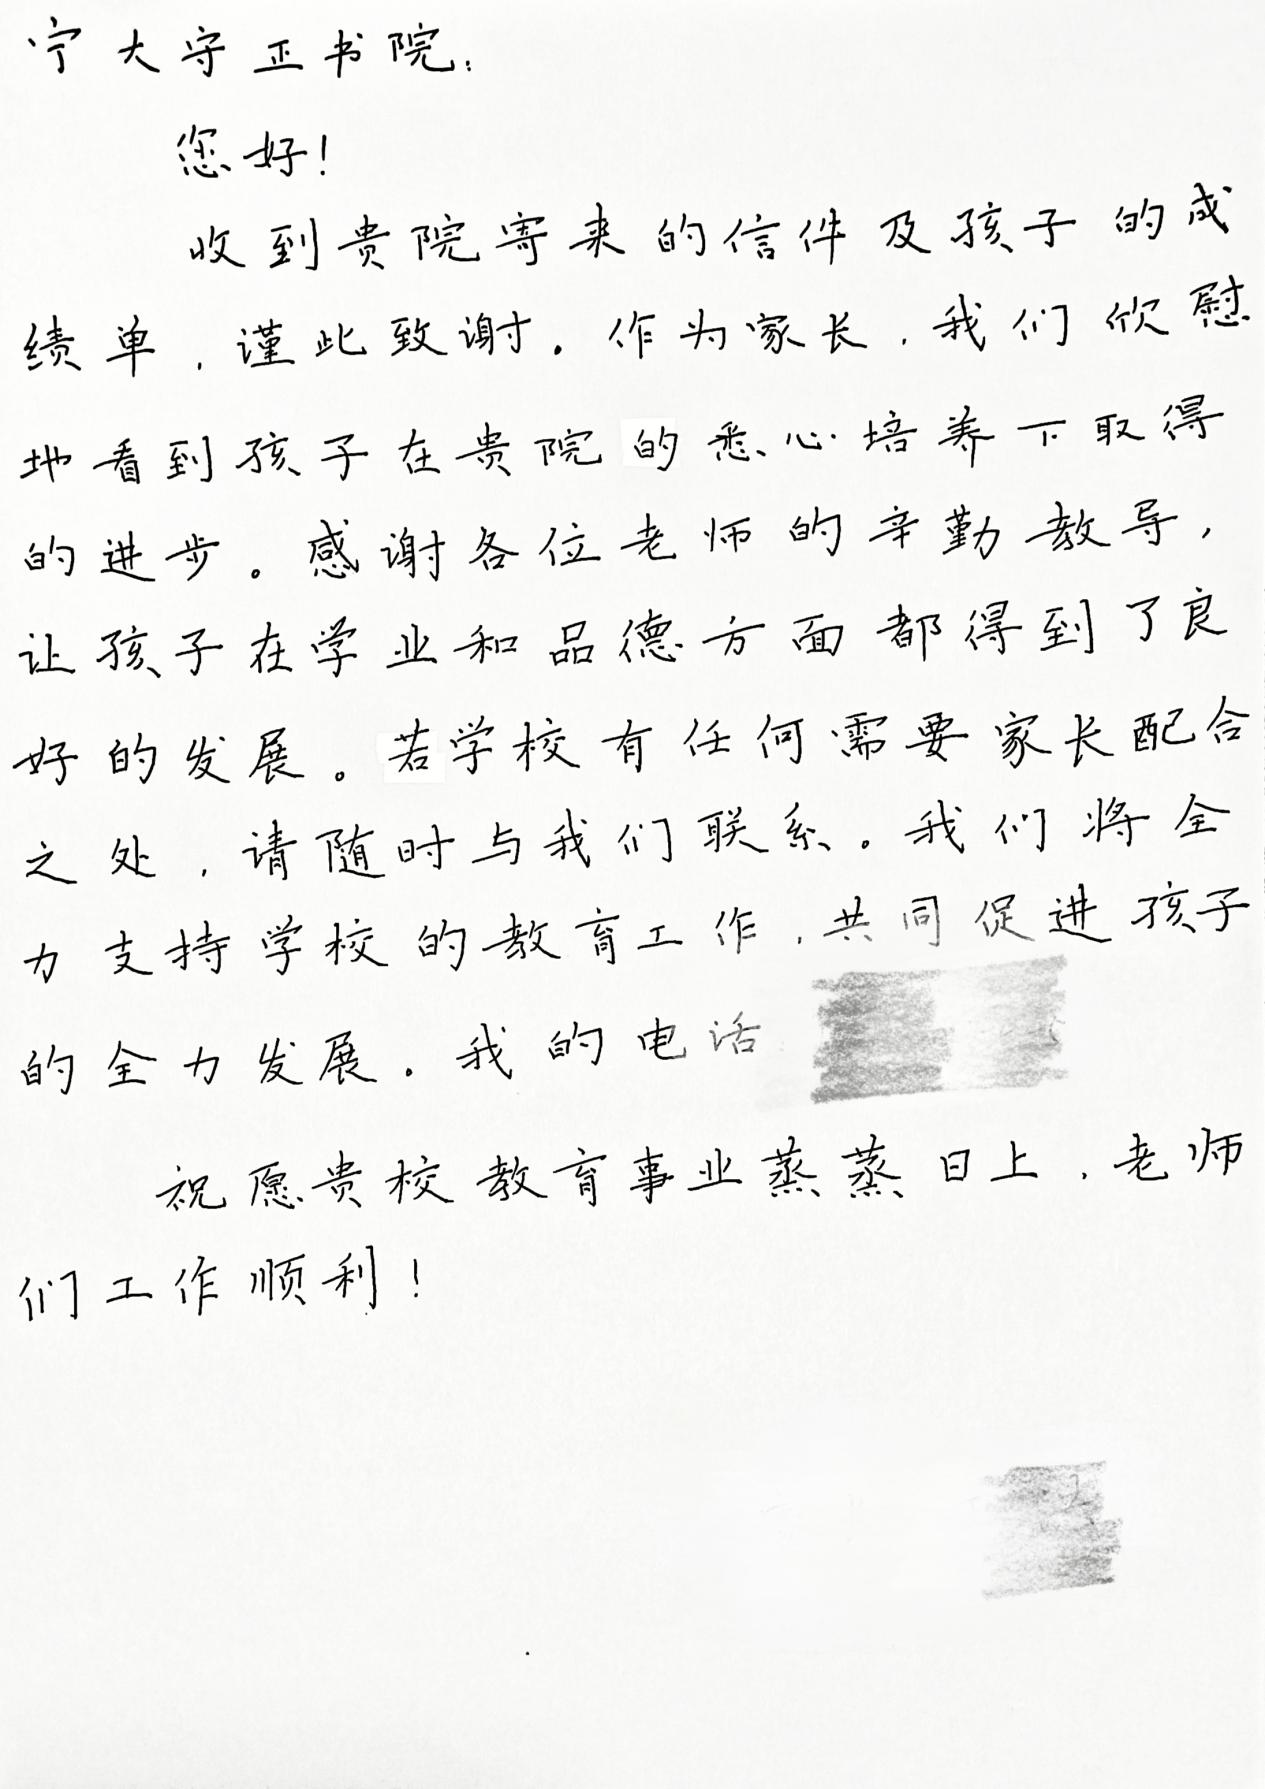 宁大守正书院:
您好!
收到贵院寄来的信件及孩子的成
绩单,谨此致谢。作为家长,我们欣慰
地看到孩子在贵院的悉心培养下取得
的进步。感谢各位老师的辛勤教导,
让孩子在学业和品德方面都得到了良
好的发展。若学校有任何需要家长配合
之处,请随时与我们联系。我们将全
力支持学校的教育工作,共同促进孩子
的全力发展。我的电话
祝愿贵校教育事业蒸蒸日上,老师
们工作顺利!